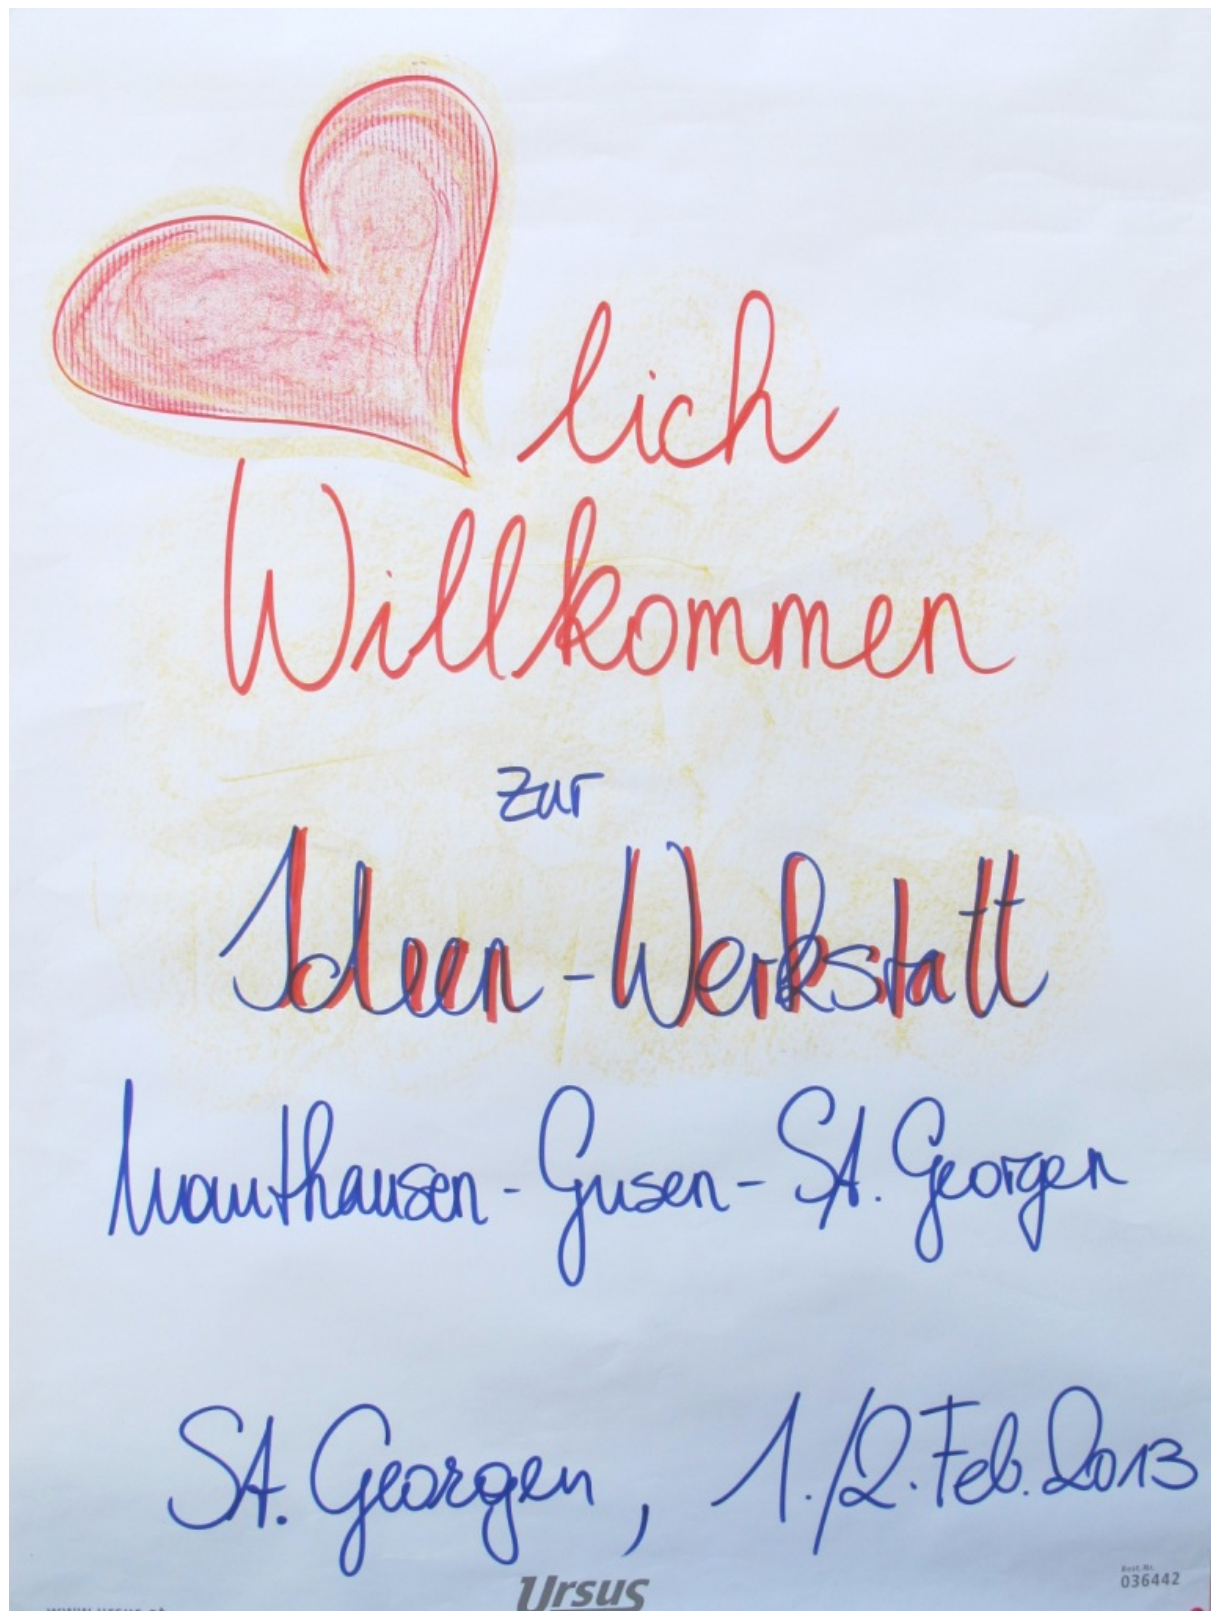 lich
Willkommen
zur
Ideen-Werkstatt
Mauthausen-Gusen-St. Georgen
St. Georgen, 1./2. Feb. 2013
Ursus
Best.Nr.
036442
www.ursus.at